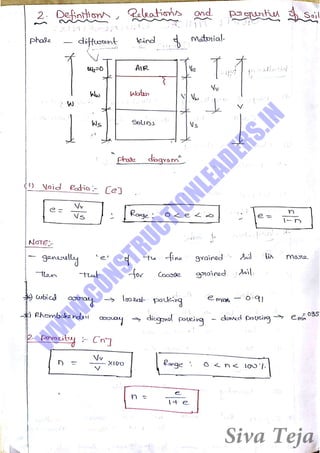 2. Definitions, Releations and properties of Soil
phase — different kind of Material.
Wa=0 AIR Va
Ww Water Vw Vv
W V
Ws SOLIDS Vs
"phase diagram"
(1) Void Ratio :- [e]
e = Vv / Vs Range : 0 < e < ∞ e = n / 1-n
NOTE:-
— generally 'e' of the fine grained soil is more
than that for coarse grained soil.
cubical array → loosest packing e max = 0.91
Rhombohendral array → diagonal packing - closed packing → e min = 0.35
2. Porosity :- [n]
n = Vv / V X100 Range : 0 < n < 100%
n = e / 1+e
WWW.CONSTRUCTIONLEADERS.IN
Siva Teja